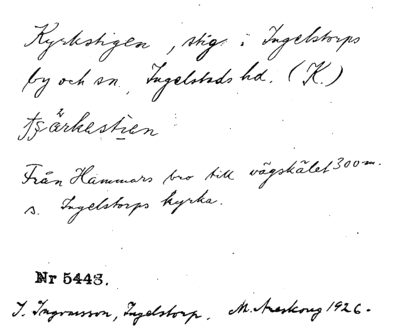 Kyrkstigen, stig i Ingelstorps
by och sn, Ingelstads hd. (K.)
Från Hammars bro till vägskälet 300 m.
s. Ingelstorps kyrka.
Nr 5443.
J. Ingvarsson, Ingelstorp, M. Areskoug 1926.